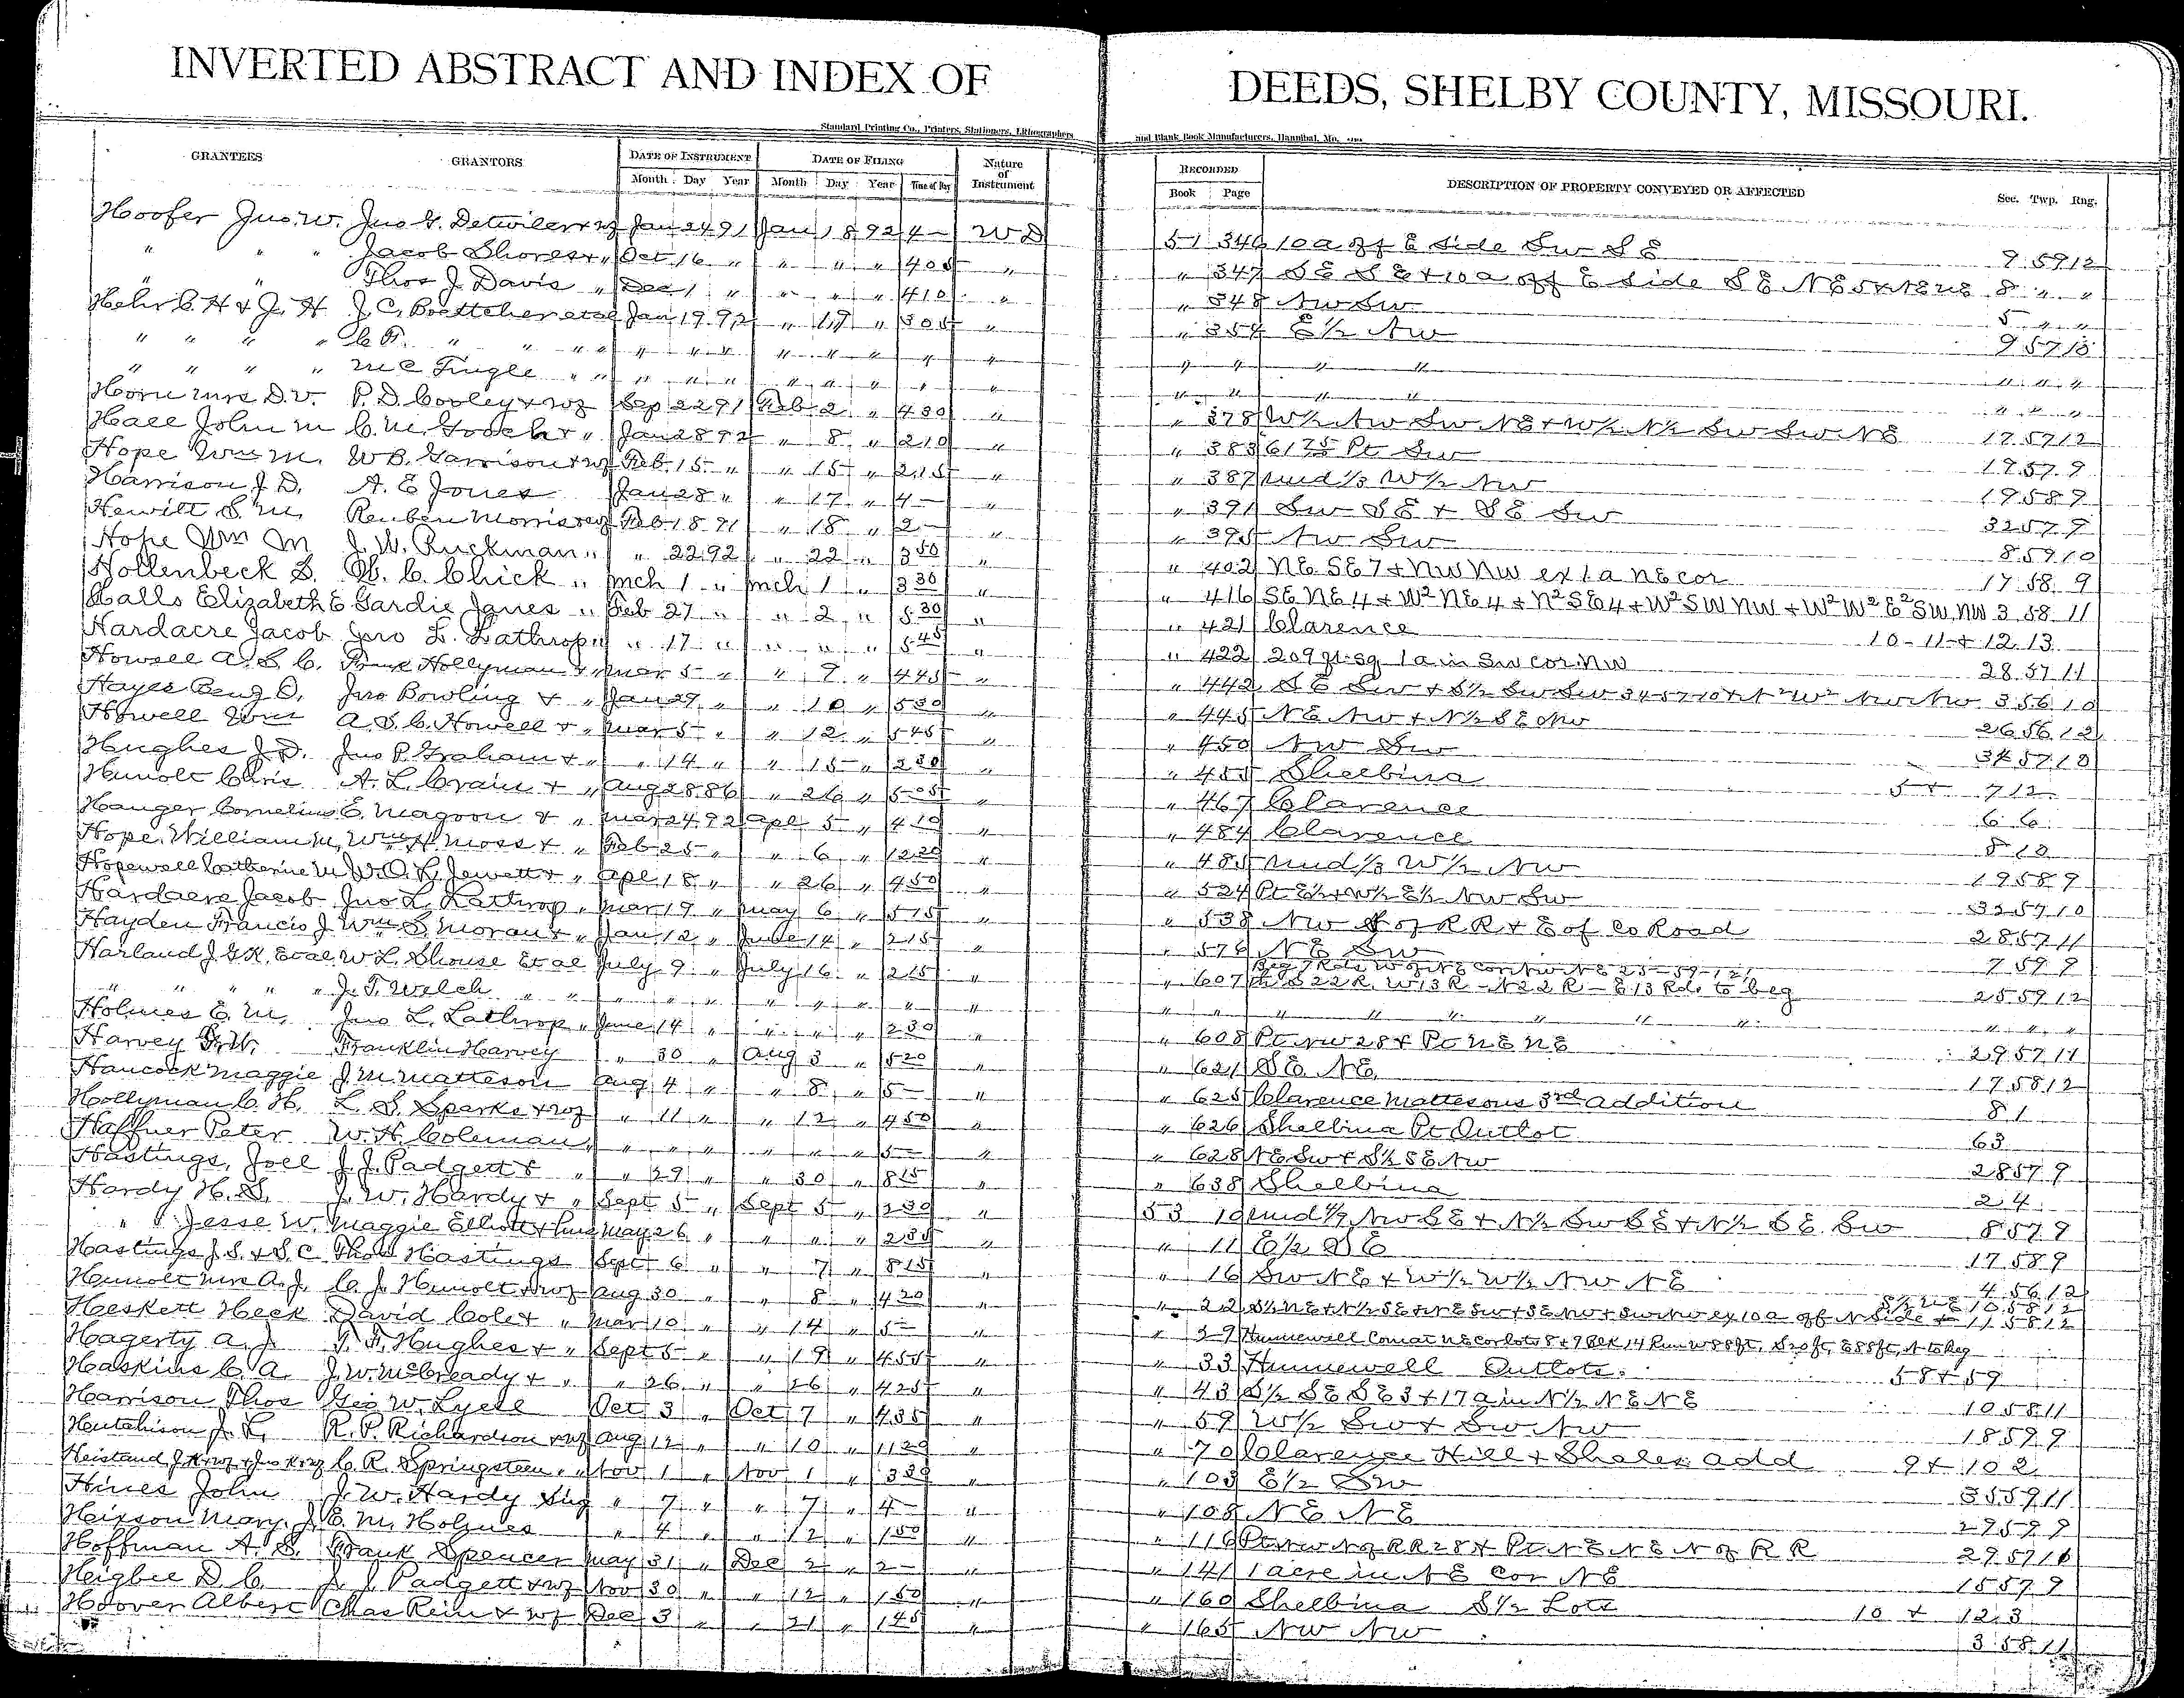 INVERTED ABSTRACT AND INDEX OF DEEDS, SHELBY COUNTY, MISSOURI.
Standard Printing Co., Printers, Stationers, Lithographers and Blank Book Manufacturers, Hannibal, Mo.
GRANTEES GRANTORS DATE OF INSTRUMENT DATE OF FILING Nature of Instrument RECORDED DESCRIPTION OF PROPERTY CONVEYED OR AFFECTED Sec. Twp. Rng.
Month Day Year Month Day Year Time of Day Book Page
Hoofer Jno. W. Jno G. Detwiler & wf Jan 24 91 Jan 18 92 4 — W D 51 346 10 a off E side Sw S E 9 59 12
" " " Jacob Shores & " Oct 16 " " " " 4 05 " " 347 S E S E & 10 a off E side S E N E 8 " "
" " " Thos J. Davis " Dec 1 " " " " 4 10 " " 348 Nw Sw 5 " "
Hehr C. H & J. H J. C. Boettcher et al Jan 19 92 " 19 " 3 05 " " 354 E ½ Nw 9 57 10
" " " " C. F. " " " " " " " " " " " " " " " " " " " "
" " " " M C Tingle " " " " " " " " " " " " " " " " " "
Horn Mrs D. V. P. D. Cooley & wf Sep 22 91 Feb 2 " 4 30 " " 378 W ½ Nw Sw N E & W ½ N ½ Sw Sw N E 17 57 12
Hall John M C. M. Gooch & " Jan 28 92 " 8 " 2 10 " " 383 61 75 Pt Sw 19 57 9
Hope Wm M. W B. Garrison & wf Feb 15 " " 15 " 2 15 " " 387 Und ⅓ W ½ Nw 19 58 9
Harrison J. D. A. E Jones Jan 28 " " 17 " 4 — " " 391 Sw S E & S E Sw 32 57 9
Hewitt S. M. Reuben Morris & wf Feb 18 91 " 18 " 2 — " " 395 Nw Sw 8 59 10
Hope Wm M J. W. Ruckman " " 22 92 " 22 " 3 50 " " 402 NE SE 7 & NW NW ex 1 a NE cor 17 58 9
Hollenbeck S. W. C. Chick " Mch 1 " Mch 1 " 3 30 " " 416 SE NE 4 & W² NE 4 & N² SE 4 & W² SW NW & W² W² E² SW NW 3 58 11
Halls Elizabeth E Gardie Janes " Feb 27 " " 2 " 5 30 " " 421 Clarence 10 - 11 & 12 13
Hardacre Jacob Jno L. Lathrop " " 17 " " " " 5 45 " " 422 209 ft sq 1 a in Sw cor NW 28 57 11
Howell A. S. C. Frank Hollyman & " Mar 5 " " 9 " 4 45 " " 442 S E Sw & S ½ Sw Sw 34 57 10 & N² W² Nw Nw 3 56 10
Hayes Benj O. Jno Bowling & " Jan 29 " " 10 " 5 30 " " 445 N E Nw & N ½ S E Nw 26 56 12
Howell Wm A. S. C. Howell & " Mar 5 " " 12 " 5 45 " " 450 Nw Sw 34 57 10
Hughes J. D. Jno P. Graham & " " 14 " " 15 " 2 30 " " 455 Shelbina 5 & 7 12
Hunolt Chris A. L. Crain & " Aug 28 86 " 26 " 5 05 " " 467 Clarence 6 6
Hanger Cornelius E Magoon & " Mar 24 92 Apl 5 " 4 10 " " 484 Clarence 8 10
Hope William M. Wm H Moss & " Feb 25 " " 6 " 12 20 " " 485 Und ⅓ W ½ Nw 19 58 9
Hopewell Catherine M W. O. L. Jewett & " Apl 18 " " 26 " 4 50 " " 524 Pt E ½ & W ½ E ½ Nw Sw 32 57 10
Hardacre Jacob Jno L. Lathrop " Mar 19 " May 6 " 5 15 " " 538 Nw of R R & E of Co Road 28 57 11
Hayden Francis J Wm S. Moran & " Jan 12 " June 14 " 2 15 " " 576 N E Sw 7 59 9
Harland J. G. K. et al W. L. Shouse et al July 9 " July 16 " 2 15 " " 607 Beg 7 Rds W of N E cor Nw N E 25-59-12, th S 22 R, W 13 R - N 22 R - E 13 Rds to beg 25 59 12
" " " " J. T. Welch " " " " " " " " " " " " " " " " " " "
Holmes E. M. Jno L. Lathrop " June 14 " " " " 2 30 " " 608 Pt NW 28 & Pt N E N E 29 57 11
Harvey G. W. Franklin Harvey " 30 " Aug 3 " 5 20 " " 621 S E N E 17 58 12
Hancock Maggie J. M. Matteson Aug 4 " " 8 " 5 — " " 625 Clarence Mattesons 3rd Addition 8 1
Hollyman C. H. L. S. Sparks & wf " 11 " " 12 " 4 50 " " 626 Shelbina Pt Outlot 63
Haffner Peter W. H. Coleman " " " " " " " 5 — " " 628 N E Sw & S ½ S E Nw 28 57 9
Hastings, Joel J. J. Padgett & " " 29 " " 30 " 8 15 " " 638 Shelbina 2 4
Hardy H. S. J. W. Hardy & " Sept 5 " Sept 5 " 2 30 " 53 10 Und ½ Nw S E & N ½ Sw S E & N ½ S E Sw 8 57 9
" Jesse W. Maggie Elliott & hus May 26 " " " " 2 35 " " 11 E ½ S E 17 58 9
Hastings J. S. & S. C Thos Hastings Sept 6 " " 7 " 8 15 " " 16 Sw N E & W ½ W ½ Nw N E 4 56 12
Hunolt Mrs A. J. C. J. Hunolt & wf Aug 30 " " 8 " 4 20 " " 22 S ½ N E & N ½ S E & N E Sw & S E Nw & Sw Nw ex 10 a off N side & S ½ N E 10 58 12 11 58 12
Heskett Heck David Cole & " Mar 10 " " 14 " 5 — " " 29 Hunnewell Com at NE cor lots 8 & 9 Blk 14 Run W 88 ft, S 20 ft, E 88 ft, N to Beg
Hagerty A. J. T. F. Hughes & " Sept 5 " " 19 " 4 55 " " 33 Hunnewell Outlots 58 & 59
Haskins C. A. J. W. McCready & " " 26 " " 26 " 4 25 " " 43 S ½ S E S E 3 & 17 a in N ½ N E N E 10 58 11
Harrison Thos Geo W. Lyell Oct 3 " Oct 7 " 4 35 " " 59 W ½ Sw & Sw Nw 18 59 9
Hutchison J. L. R. P. Richardson & wf Aug 12 " " 10 " 11 20 " " 70 Clarence Hill & Shales add 9 & 10 2
Heistand J. K & wf & Jno K & wf C. R. Springsteen " " Nov 1 " Nov 1 " 3 30 " " 103 E ½ Sw 35 59 11
Hines John J. W. Hardy Sing " 7 " " 7 " 4 — " " 108 N E N E 29 59 9
Hixson Mary J. E. M. Holmes " 4 " " 12 " 1 50 " " 116 Pt Nw N of R R 28 & Pt N E N E N of R R 29 57 11
Hoffman A. S. Frank Spencer May 31 " Dec 2 " 2 — " " 141 1 acre in N E Cor N E 15 57 9
Higbee D. C. J. J. Padgett & wf Nov 30 " " 12 " 1 50 " " 160 Shelbina S ½ Lots 10 & 12 3
Hoover Albert Chas Rein & wf Dec 3 " " 21 " 1 45 " " 165 Nw Nw 3 58 11